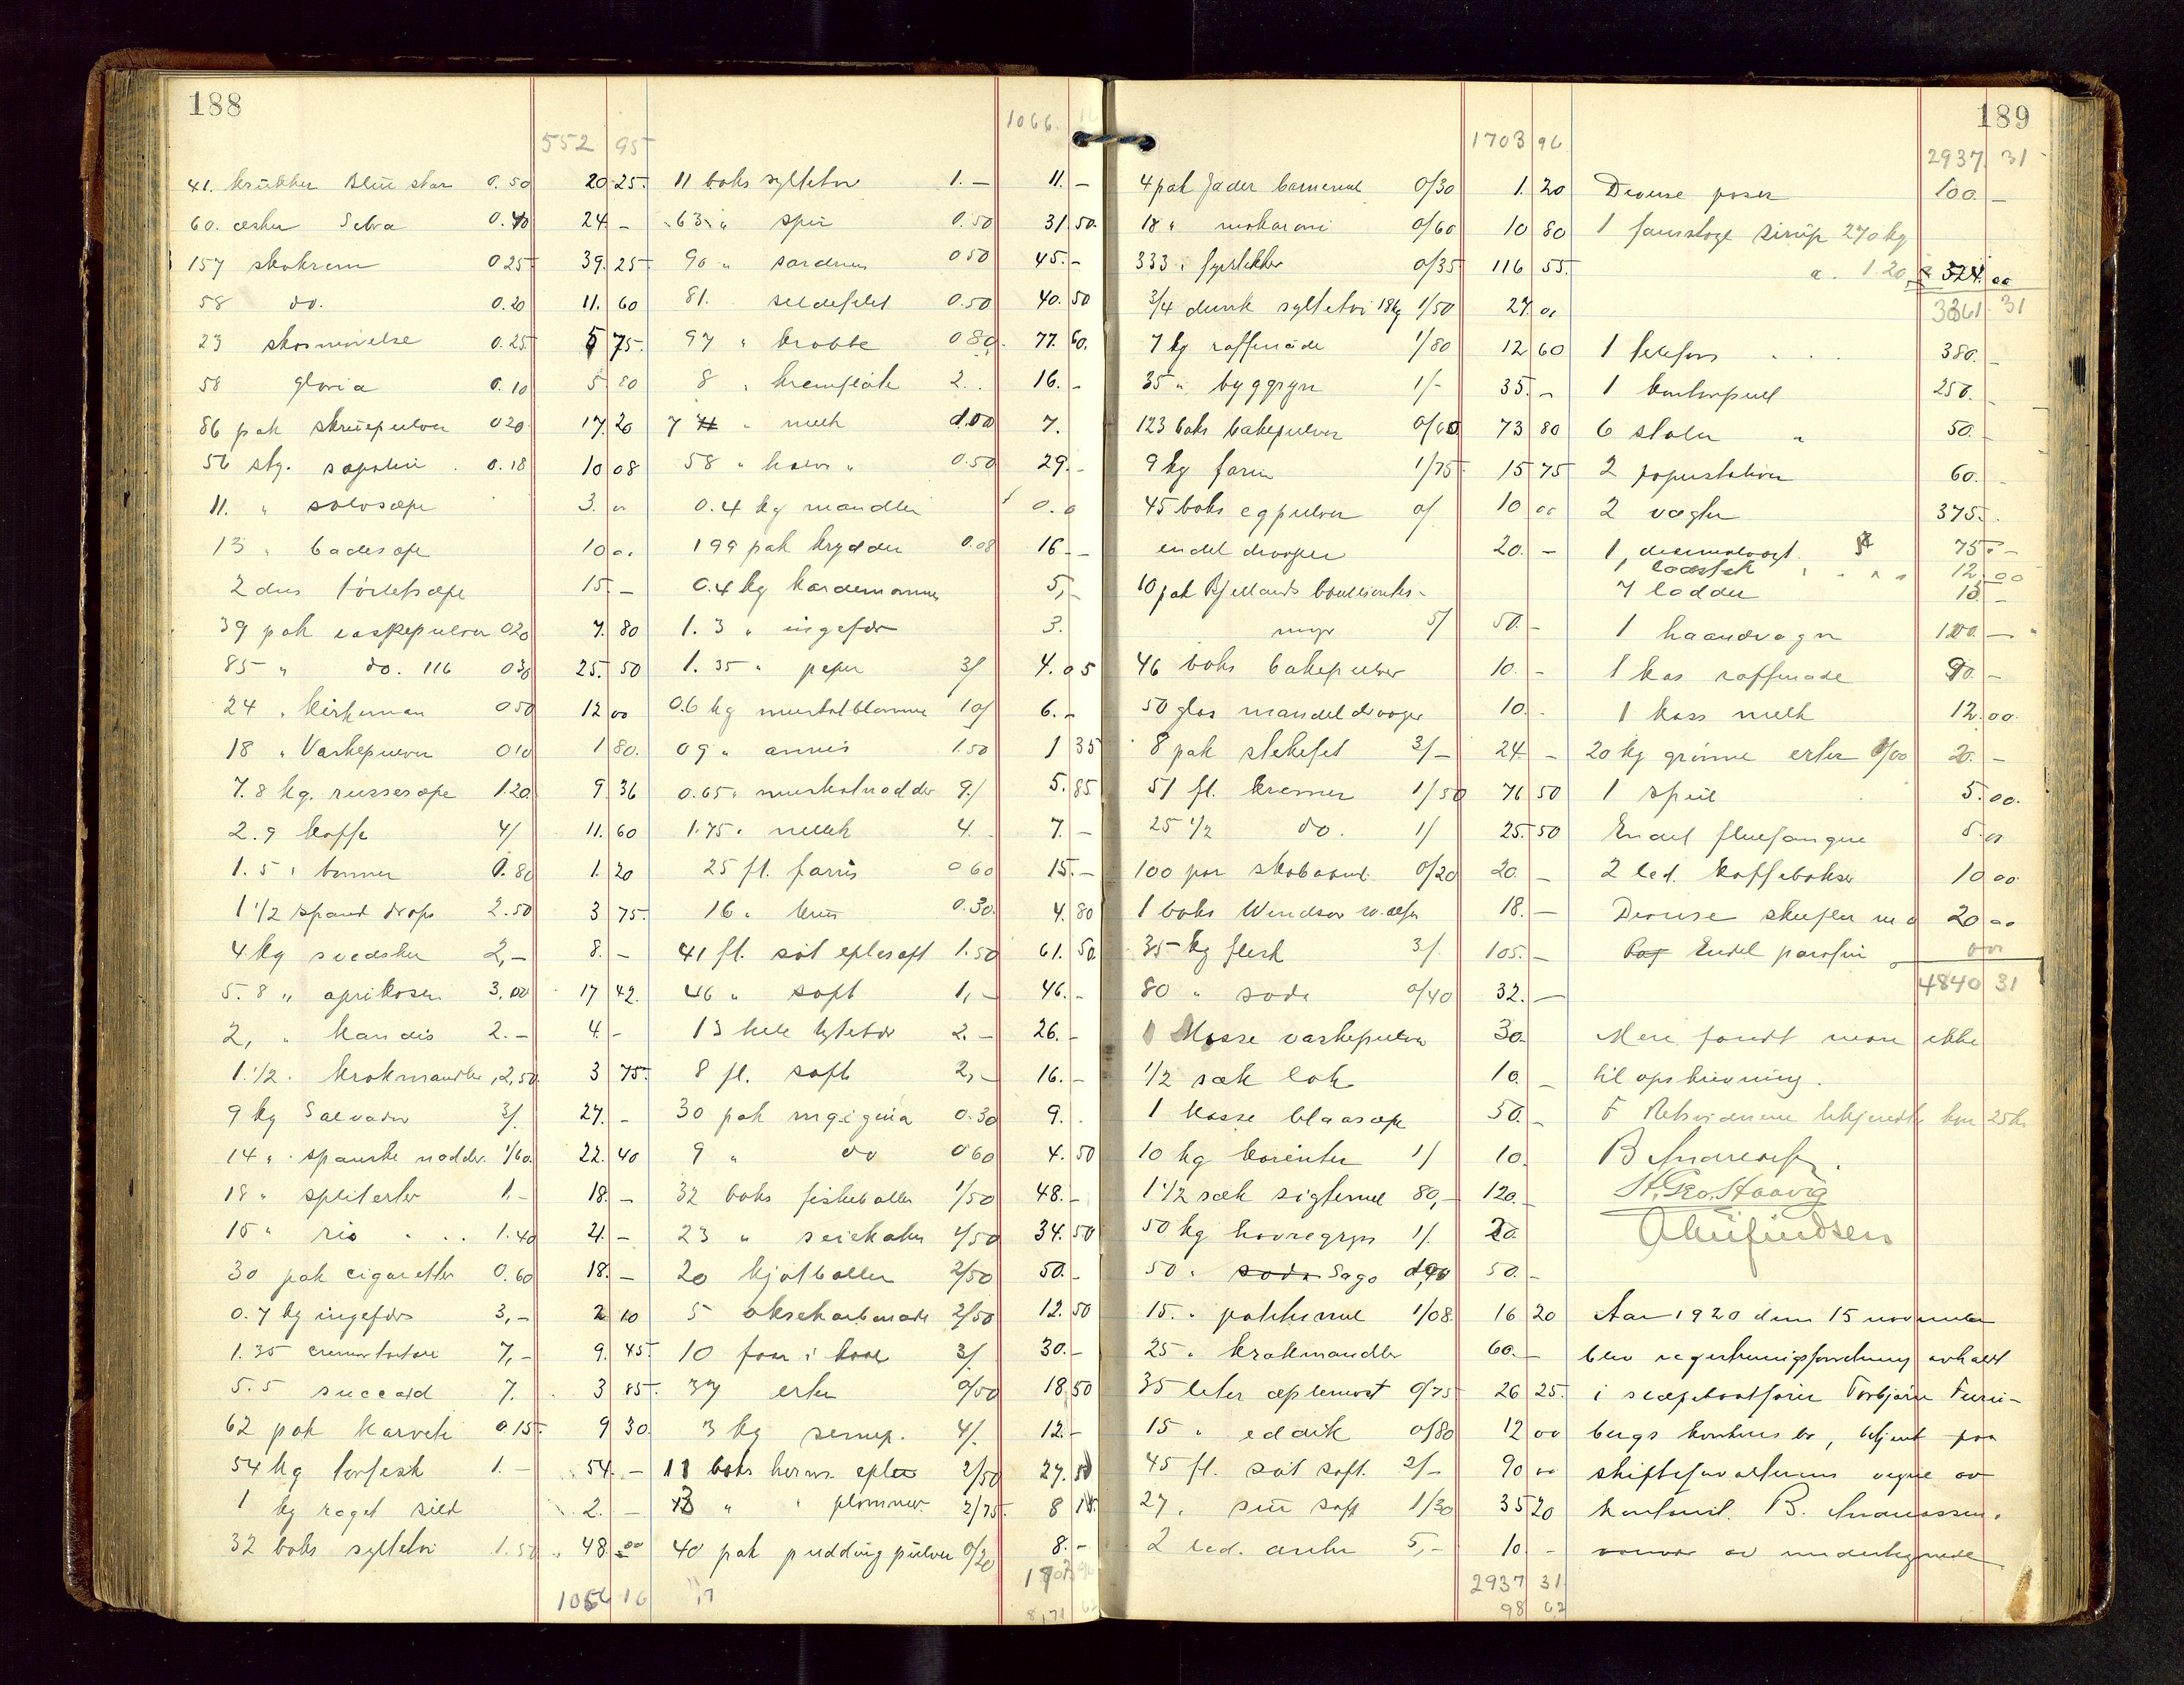 188
552 95
41. krukker Blue star 0.50 20 25.
60. æsker Selva 0.40 24. -
157 skokrem 0.25 39. 25
58 do. 0.20 11. 60
23 skosmørelse 0.25 5 75.
58 gloria 0.10 5 80
86 pak skurepulver 0.20 17. 20
56 stg. sapolin 0.18 10 08
11. " solosæpe 3. 00
13 " badesæpe 10 00
2 dus toiletsæpe 15. -
39 pak vaskepulver 0.20 7. 80
85 " do. 116 0.30 25. 50
24 " 0.50 12 00
18 " Vaskepulver 0.10 1 80.
7.8 kg. russesæpe 1.20 9 36
2.9 kaffe 4/ 11. 60
1.5 " bønner 0.80 1. 20
1 1/2 spand drops 2.50 3 75.
4 kg svedsker 2,- 8. -
5.8 " aprikoser 3.00 17 42.
2, " kandis 2.- 4. -
1.1/2 . krakmandler 2,50 3 75.
9 kg Salvador 3/. 27. -
14 " spanske nødder. 1/60. 22. 40
18 " spliterter 1.- 18. -
15 " ris . . . 1.40 21. -
30 pak cigaretter 0.60 18. -
0.7 kg ingefær 3,- 2 10
1.35 cremortartari 7,- 9. 45.
5.5 succard 7. 3 85.
62 pak karvek 0.15. 9 30.
54 kg torfesk 1.- 54. -
1 kg røget sild 2. -
32 boks syltetøi 1.50 48. 00
1066 16
1066. 16
11 boks syltetøi 1.- 11. -
63 " spir 0.50 31. 50.
90 " sardiner 0.50 45. -
81. sildefilet 0.50 40. 50
97 " krabbe 0.80 77. 60.
8 " 2.. 16. -
7 " melk 1.00 7.
58 " halve " 0.50 29. -
0.4 kg mandler
199 pak krydder 0.08 16. -
0.4 kg kardemomme 5, -
1.3 " ingefær 3.
1.35 " peper 3/ 4. 05
0.6 kg muskatblomme 10/ 6. -
0.9 " annis 1.50 1 35
0.65 " muskatnødder 9./ 5. 85
1.75 " nellik 4. 7. -
25 fl. farris 0.60 15. -
16 " brus 0.30. 4. 80
41 fl. søt eplesaft 1.50 61. 50.
46 " saft 1,- 46. -
13 hele syltetøi 2.- 26. -
8 fl. saft 2,- 16. -
30 pak 0.30 9. .
9 " do 0.60 4. 50
32 boks fiskeboller 1/50 48. -
23 " seiekaker 1/50 34. 50
20 kjøtboller 2/50 50. -
5 oksekarbonade 2/50 12. 50
10 faar i kaal 3/. 30. -
37 erter 0/50 18. 50
3 kg sennep. 4/. 12. -
11 boks herm. epler 2/50 27. 50
3 " " plommer 2/75. 8 25.
40 pak pudding pulver 0/20 8. -
189
1703 96
4 pak Jæder barnemel 0/30 1. 20
18 " makaroni 0/60 10 80
333 " fyrstikker 0/35 116 55.
3/4 dunk syltetøi 18 kg 1/50 27. 00
7 kg raffinade 1/80 12 60
35 " byggryn 1/- 35. -
123 boks bakepulver 0/60 73 80
9 kg farin 1/75 15 75
45 boks egpulver 0/ 10 00
endel draaper 20. -
10 pak Bjellands
5/ 50. -
46 boks bakepulver 10. -
50 glas mandel draaper 10. -
8 pak stekefet 3/- 24. -
51 fl. kremer 1/50 76 50
25 1/2 do. 1/ 25. 50
100 par skobaand. 0/20 20. -
1 boks Windsor 18. -
35 kg flesk 3/. 105. -
80 " soda 0/40 32. -
1 kasse vaskepulver 30.
1/2 sæk løk 10. -
1 kasse blaasæpe 50. -
10 kg korenter 1/ 10.
1 1/2 sæk sigtemel 80,- 120. -
50 kg havregryn 1/. 20.
50 " soda Sago 50. -
15. " potetmel 1/08. 16 20
25 " krakmandler 60. -
35 liter æplemost 0/75 26 25.
15 " eddik 0/80 12 00
45 fl. søt saft. 2/- 90 00
27 . sur saft 1/30 35 20
2 led. anker 5,- 10. -
2937 31
98 62
2937. 31
Diverse poser 100. -
1 faustage sirup 270 kg
a. 1.20 324. 00
3361. 31
1 telefon . . . 380. -
1 kontorpult 250. -
6 stoler " 50. -
2 papirstativer 60. -
2 vægter 375. .
1, desimalvægt 75. -
12. 00
7 lodder 15 -
1 haandvogn 100. -
1 kas raffinade 90. -
1 kass melk 12. 00.
20 kg grønne erter 20. -
1 speil 5. 00.
Endel fluefangere 5. 00
2 led. kaffebokser 10 00
Diverse skuffer m v 20 00
Endel parafin
4840 31
Mere fandt man ikke
til opskrivning.
2 Retsvidnerne tilkjendt hver 25 kr.
B Knareassen.
H. Geo. Haavig
A Knudsen
Aar 1920 den 15 november
blev registreringsforretning avholdt
i slæpebaatfører Torbjørn Tuni-
bergs konkurs bo, betjent paa
skifteforvalterens vegne av
kontorist. B. Knareassen.
av undertegnede